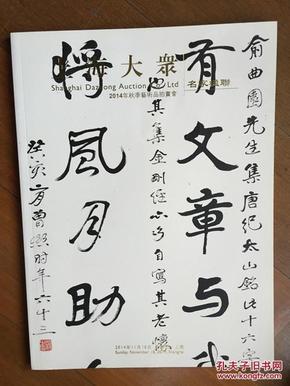 上海大衆
Shanghai Dazhong Auction Co., Ltd
名家楹聯
2014年秋季藝術品拍賣會
俞曲園先生集唐紀太山銘此十六字
有文章与
也其集金剛經
自寫其老懷
将風月助
癸亥
曾熙時年六十三
2014年11月16日
Sunday November 16, 2014 Shanghai
孔夫子旧书网